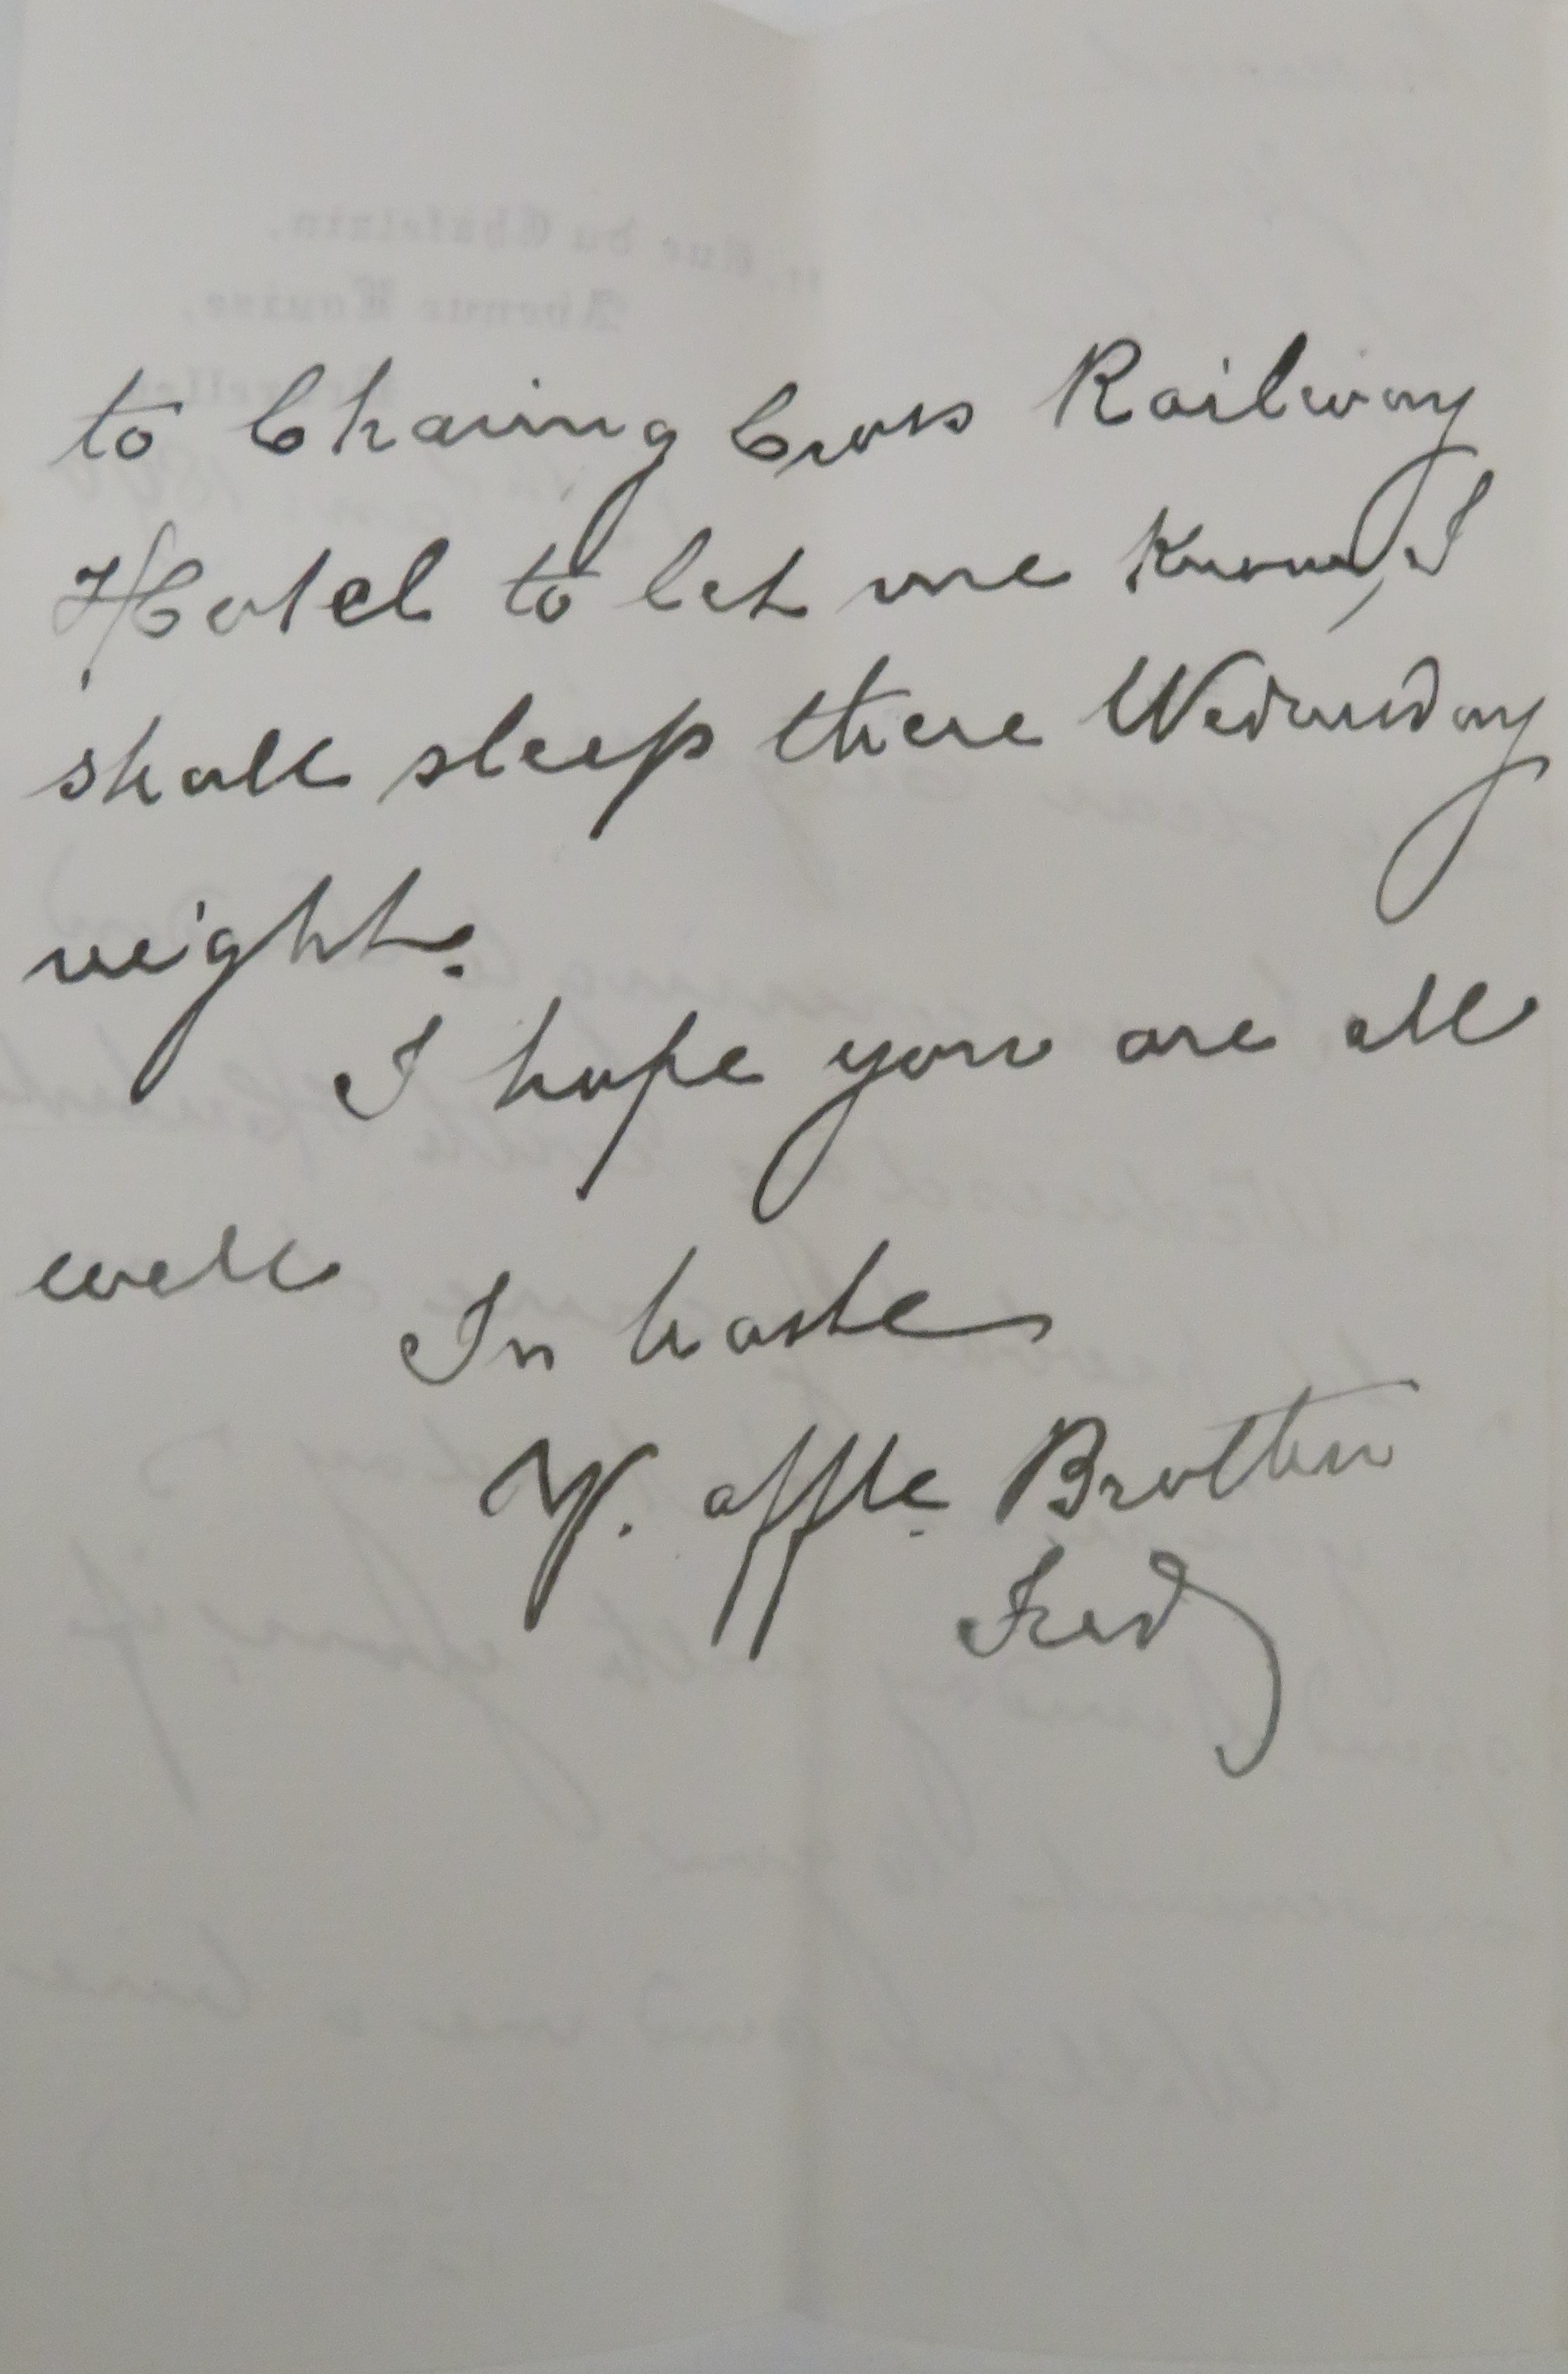 to Charing Cross Railway
Hotel to let me Know, I
shall sleep there Wednesday
night.
I hope you are all
well
In haste
Y. affte. Brother
Fred